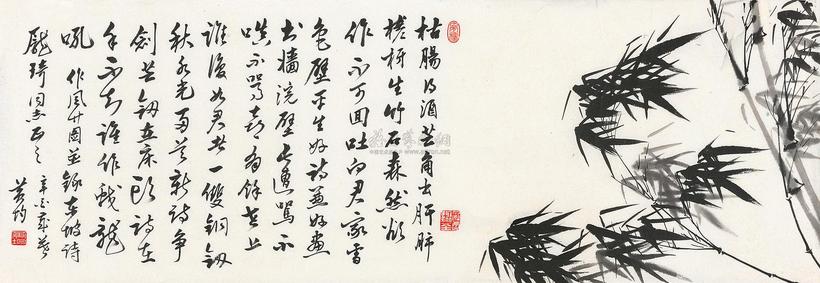 枯腸得酒芒角出肝肺
槎枒生竹石森然欲
作不可回吐向君家雪
色壁平生好詩兼好畫
書牆涴壁長遭罵不
嗔不罵喜有餘世上
誰復如君者一雙銅釼
秋水光兩首新詩爭
劍芒釼在床頭詩在
手不知誰作蛟龍
吼 作風竹圖並錄東坡詩
同志正之 辛酉歲暮